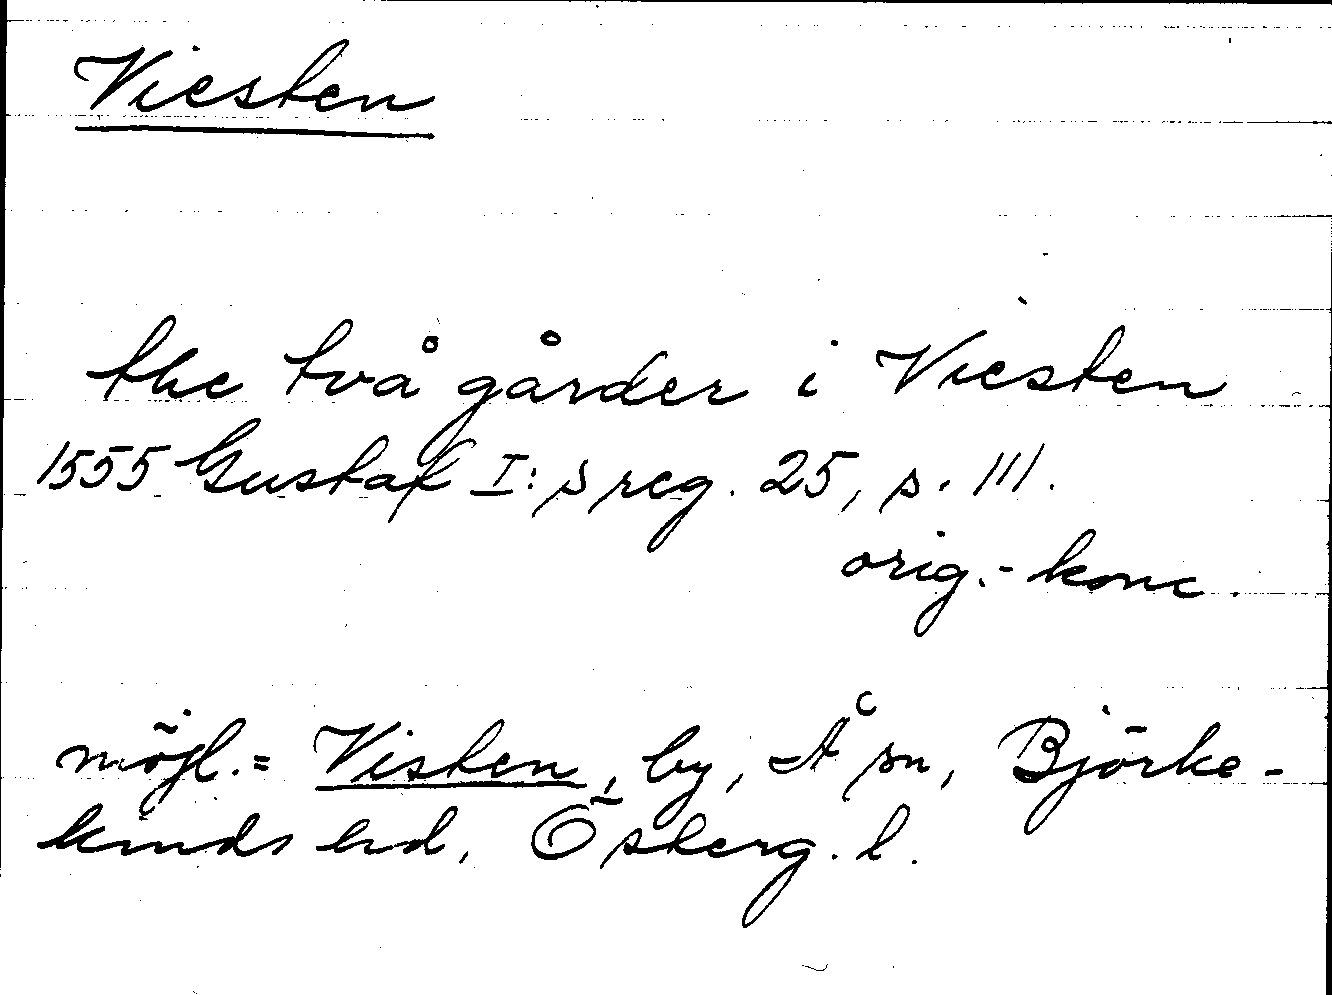 Viesten
the två gårder i Viesten
1555 Gustaf I:s reg. 25, s. 111.
orig.-konc.
möjl. = Visten, by, Å sn, Björke-
kinds hd, Österg. l.